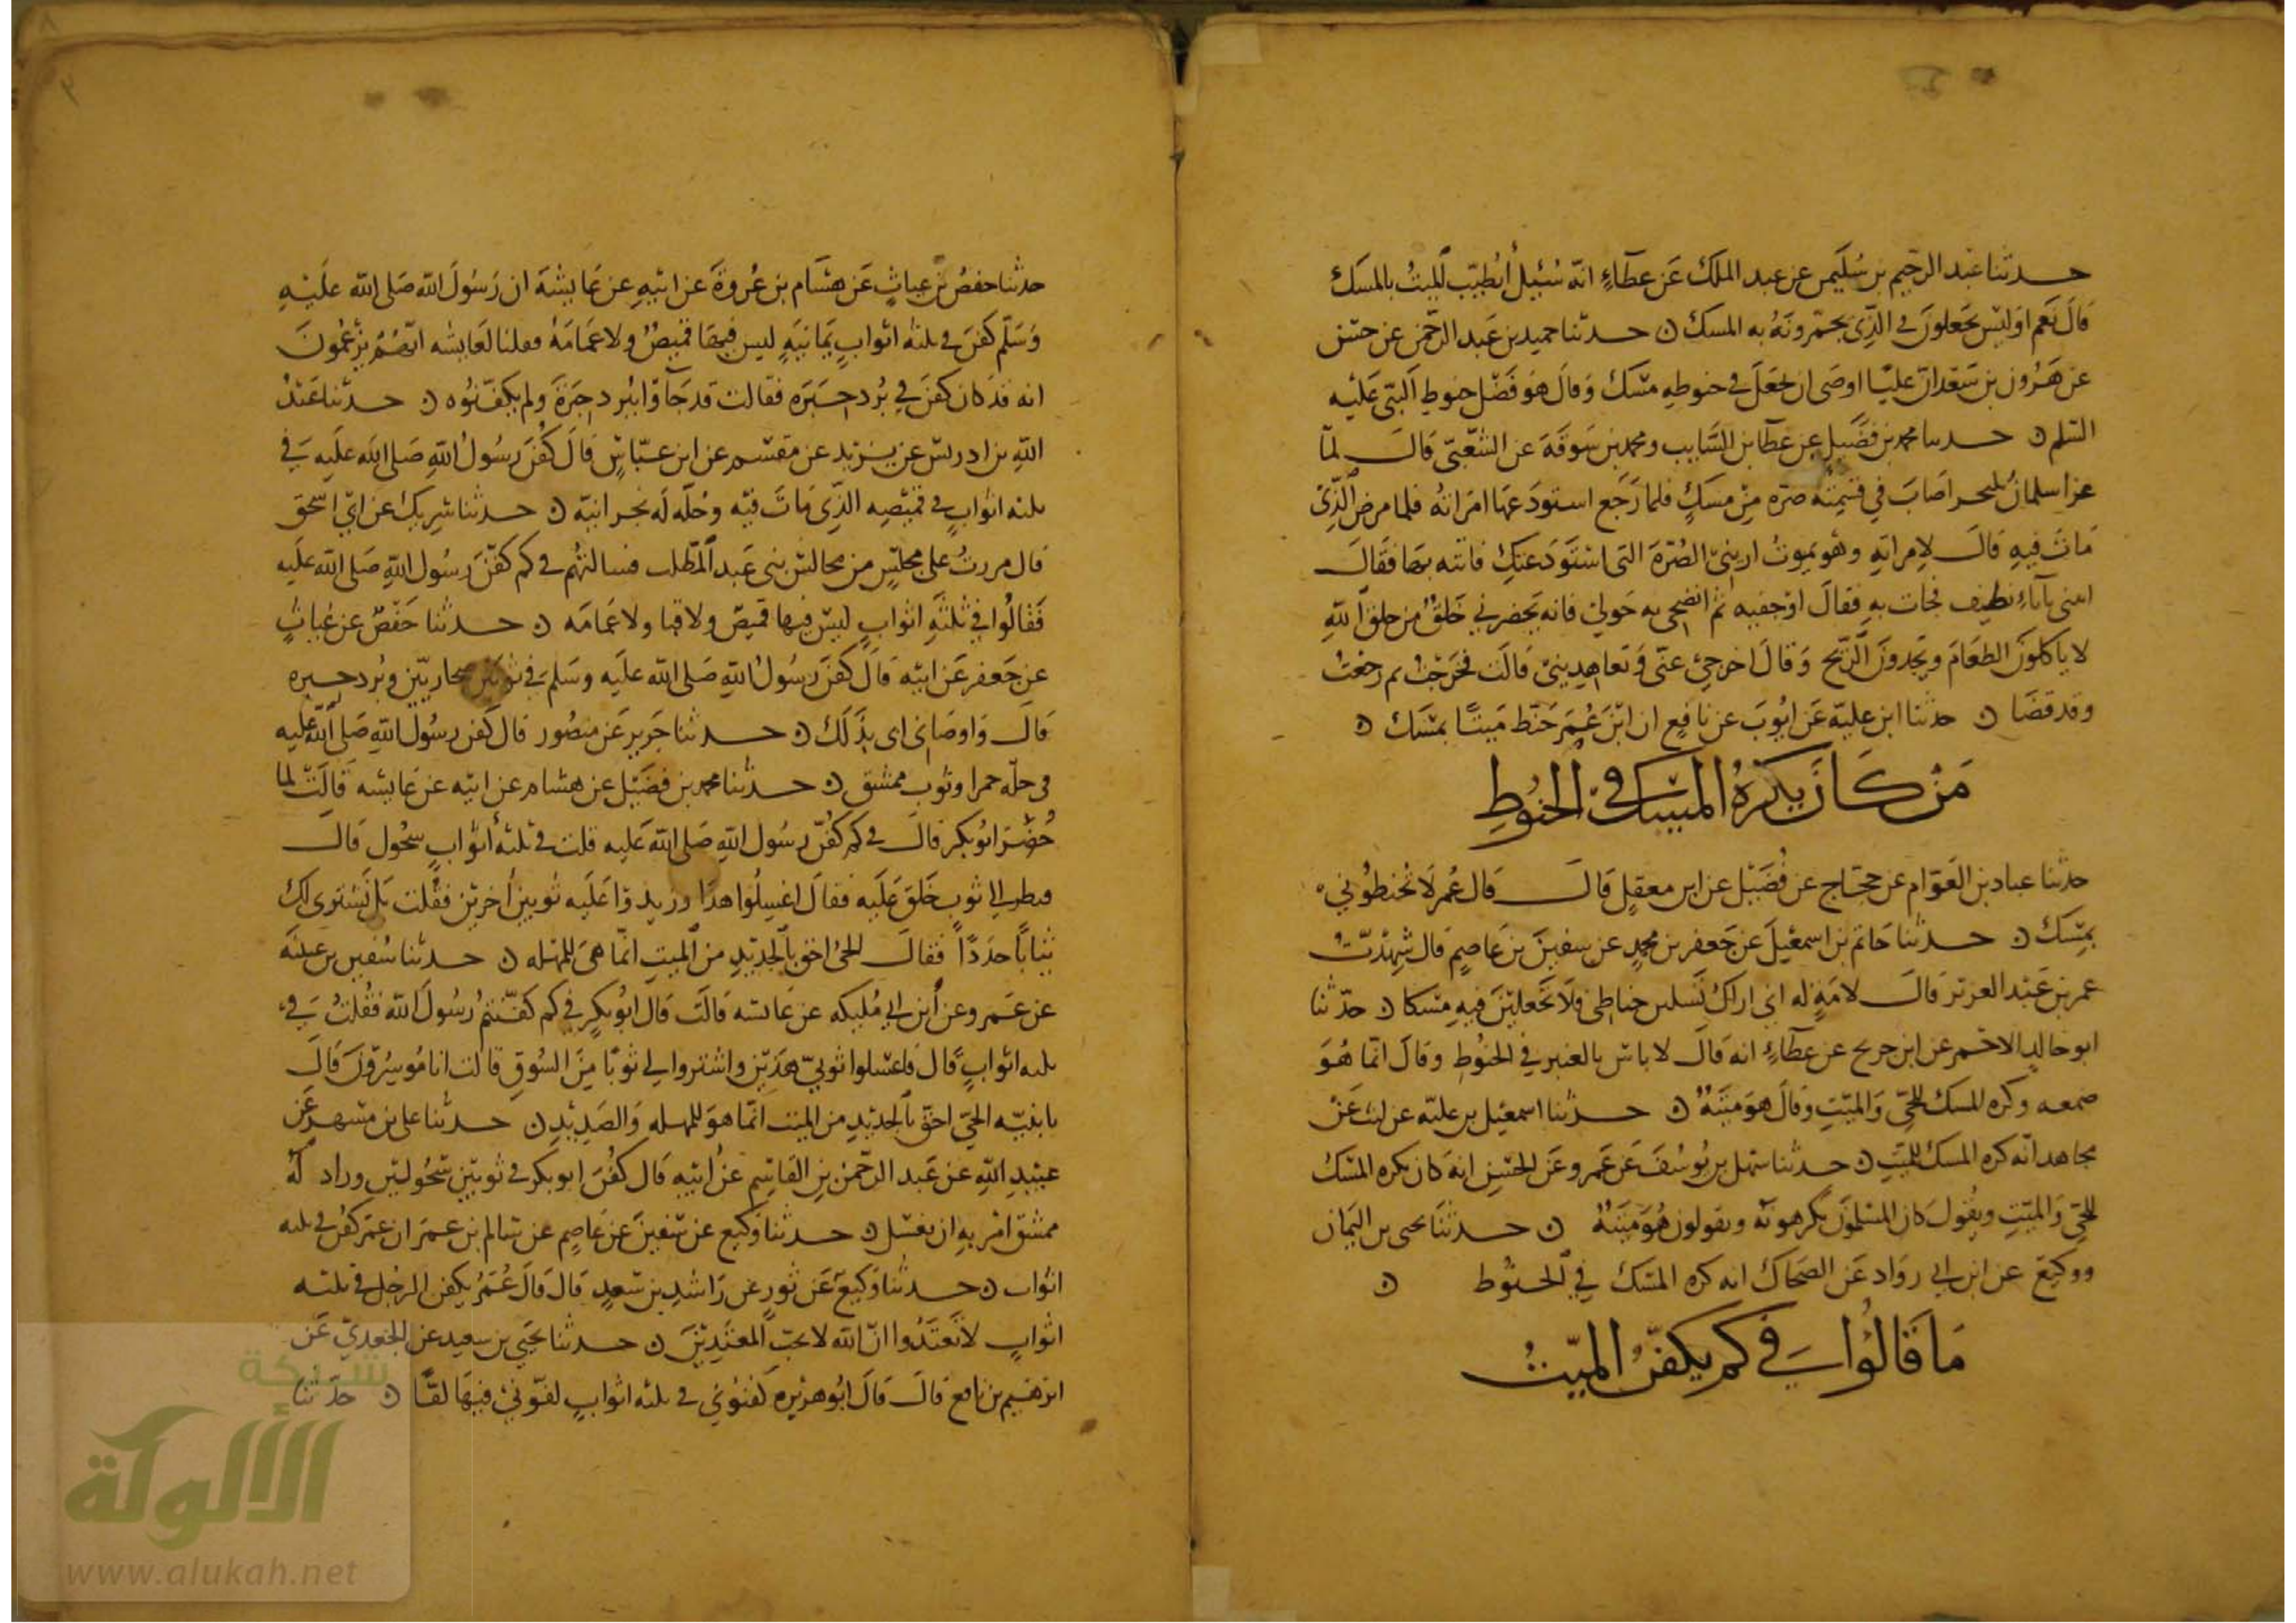 حدثنا عبد الرحيم بن سليمن عن عبد الملك عن عطاء انه سئيل أيطيب الميت بالمسك
قال نعم اوليس يجعلون في الذي يجمرونه به المسك ن حدثنا حميد بن عبد الرحمن عن حسن
عن هرون بن سعد ان عليا اوصى ان يجعل في حنوطه مسك وقال هو فضل حنوط النبي عليه
السلم ن حدثنا محمد بن فضيل عن عطا بن السايب ومحمد بن سوقة عن الشعبي قال لما
غزا سلمان بلنجر اصاب في قسمته صره من مسك فلما رجع استودعها امراته فلما مرض الذي
مات فيه قال لامراته وهو يموت اريني الصرة التي استودعتك فاتته بها فقال
ايتني باناء نظيف فجات به فقال اوجفيه ثم انضحي به حولي فانه يحضرني خلق من خلق الله
لا ياكلون الطعام ويجدون الريح وقال اخرجي عني وتعاهديني قالت فخرجت ثم رجعت
وقد قضا ن حدثنا ابن عليه عن ايوب عن نافع ان ابن عمر حنط ميتا بمسك ن
من كان يكره المسك في الحنوط
حدثنا عباد بن العوام عن حجاج عن فضيل عن ابن معقل قال قال عمر لا تحنطوني
بمسك ن حدثنا حاتم بن اسمعيل عن جعفر بن محمد عن سفين بن عاصم قال شهدت
عمر بن عبد العزيز قال لامة له اني اراك تلين حناطي فلا تجعلين فيه مسكا ن حدثنا
ابو خالد الاحمر عن ابن جريج عن عطاء انه قال لا باس بالعنبر في الحنوط وقال انما هو
صمغه وكره المسك للحي والميت وقال هو ميتة ن حدثنا اسمعيل بن عليه عن ليث عن
مجاهد انه كره المسك للميت ن حدثنا سهل بن يوسف عن عمرو عن الحسن انه كان يكره المسك
للحي والميت ويقول كان المسلمون يكرهونه ويقولون هو ميتة ن حدثنا يحيى بن اليمان
ووكيع عن ابن ابي رواد عن الضحاك انه كره المسك في الحنوط ن
ما قالوا في كم يكفن الميت
حدثنا حفص بن غياث عن هشام بن عروة عن ابيه عن عايشة ان رسول الله صلى الله عليه
وسلم كفن في ثلثه اثواب يمانيه ليس فيها قميص ولا عمامة فقلنا لعايشه انهم يزعمون
انه قد كان كفن في برد حبره فقالت قد جاؤا ببرد حبرة ولم يكفنوه ن حدثنا عبد
الله بن ادريس عن يزيد عن مقسم عن ابن عباس قال كفن رسول الله صلى الله عليه في
ثلثه اثواب في قميصه الذي مات فيه وحله له نجرانية ن حدثنا شريك عن ابي اسحق
قال مررت على مجلس من مجالس بني عبد المطلب فسالتهم في كم كفن رسول الله صلى الله عليه
فقالوا في ثلثة اثواب ليس فيها قميص ولا قبا ولا عمامه ن حدثنا حفص عن غياث
عن جعفر عن ابيه قال كفن رسول الله صلى الله عليه وسلم في ثوبين صحاريين وبرد حبره
قال واوصاني ابي بذلك ن حدثنا جرير عن منصور قال كفن رسول الله صلى الله عليه
في حله حمرا وثوب ممشق ن حدثنا محمد بن فضيل عن هشام عن ابيه عن عايشه قالت لما
حضر ابو بكر قال في كم كفن رسول الله صلى الله عليه قلت في ثلثة أثواب سحول قال
فنظر الى ثوب خلق عليه فقال اغسلوا هذا وزيدوا عليه ثوبين اخرين فقلت بل نشتري لك
ثيابا جددا فقال الحي احق بالجديد من الميت انما هي للمهله ن حدثنا سفين بن عيينة
عن عمرو عن ابن ابي مليكه عن عايشه قالت قال ابو بكر في كم كفنتم رسول الله فقلت في
ثلثه اثواب قال فاغسلوا ثوبي هذين واشتروا لي ثوبا من السوق قالت انا موسرون قال
يا بنيه الحي احق بالجديد من الميت انما هو للمهله والصديد ن حدثنا علي بن مسهر عن
عبيد الله عن عبد الرحمن بن القاسم عن ابيه قال كفن ابو بكر في ثوبين سحوليين ورداء له
ممشق امر به ان يغسل ن حدثنا وكيع عن سفين عن عاصم عن سالم بن عمر ان عمر كفن في ثلثه
اثواب ن حدثنا وكيع عن ثور عن راشد بن سعد قال قال عمر يكفن الرجل في ثلثه
اثواب لا تعتدوا ان الله لا يحب المعتدين ن حدثنا يحيى بن سعيد عن الجعدي عن
ابرهيم بن نافع قال قال ابو هريره كفنوني في ثلثه اثواب لفوني فيها لفا ن حدثنا
شبكة
الألوكة
www.alukah.net